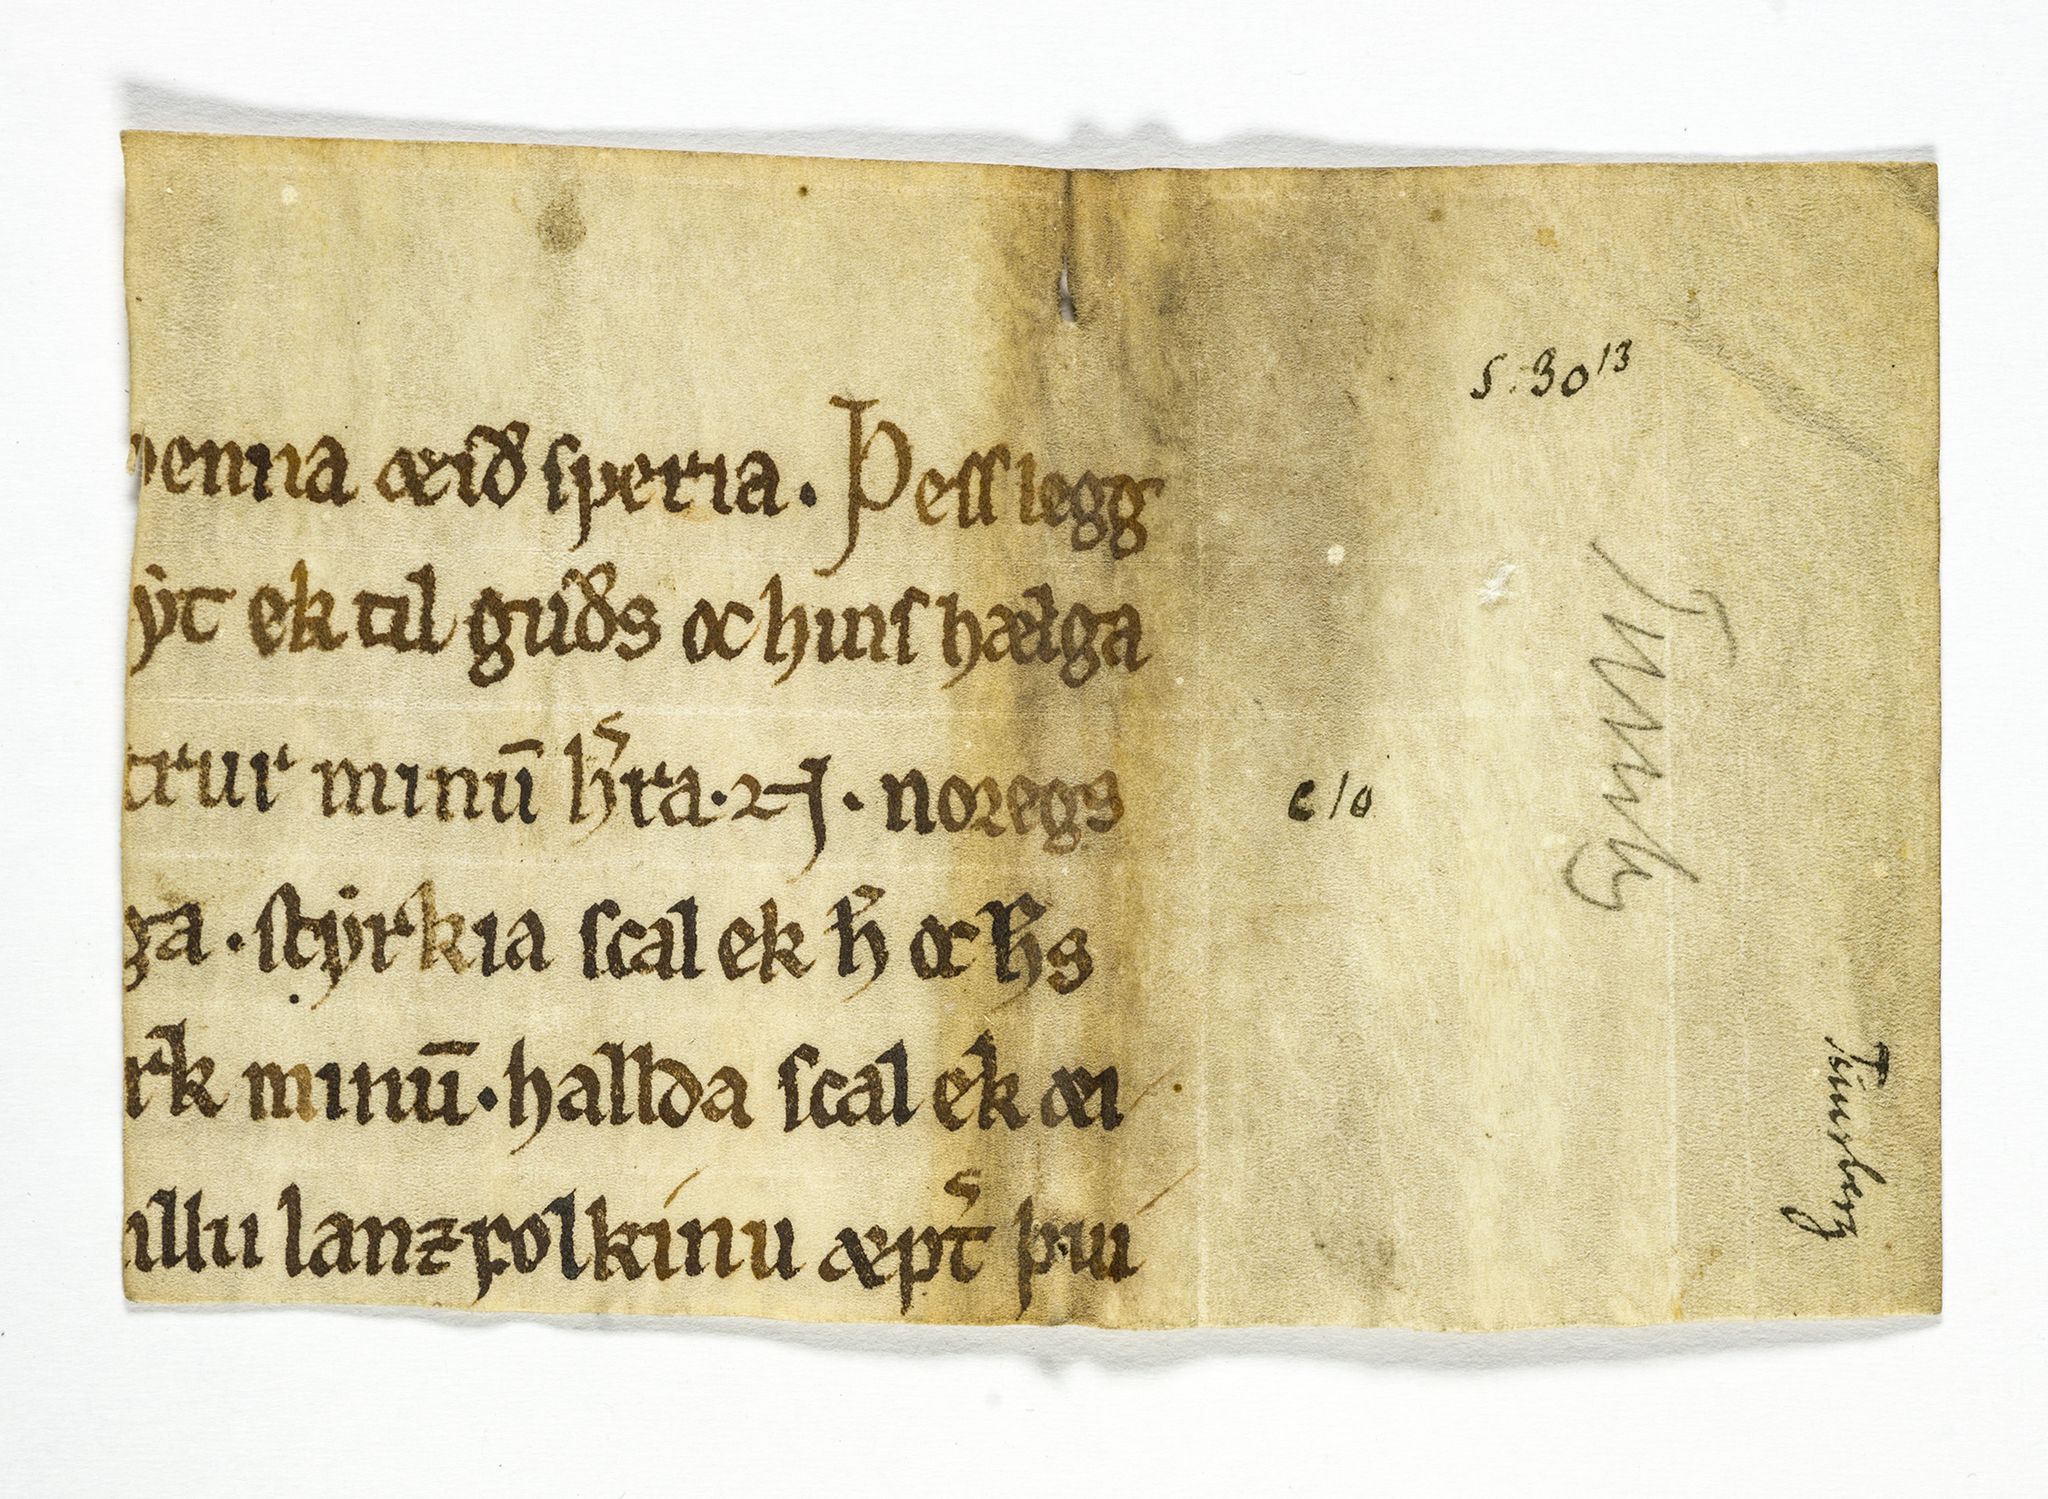 þenna æið sueria. Þess legg
ẏt ek til guðs oc hins hælga
trur minū h̾ra. ⁊ J. noregs
ga. stẏrkia scal ek h̄ oc h̄s
rk minū. hallda scal ek æi
illu lanzfolkinu æpt̾ þui
S. 30 13
c 10
Tunsberg